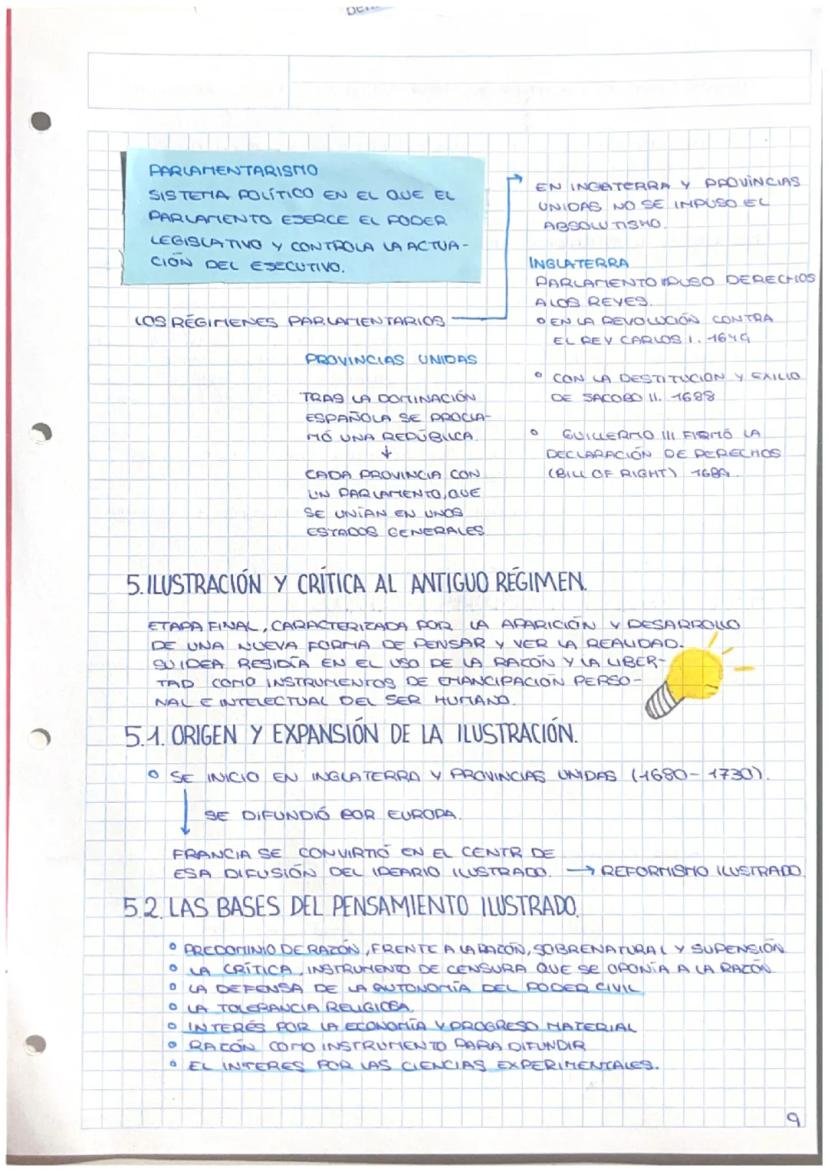 PARLAMENTARISMO
SISTEMA POLÍTICO EN EL QUE EL
PARLAMENTO EJERCE EL PODER
LEGISLATIVO Y CONTROLA LA ACTUA-
CIÓN DEL EJECUTIVO.
LOS RÉGIMENES PARLAMENTARIOS
EN INGATERRA Y PROVINCIAS
UNIDAS NO SE IMPUSO EL
ABSOLUTISMO.
INGLATERRA
PARLAMENTO IPUSO DERECHOS
A LOS REYES.
° EN LA REVOLUCIÓN CONTRA
EL REY CARLOS I. 1649
° CON LA DESTITUCION Y EXILIO
DE JACOBO II. 1688
° GUILLERMO III FIRMÓ LA
DECLARACIÓN DE DERECHOS
(BILL OF RIGHT) 1689
PROVINCIAS UNIDAS
TRAS LA DOMINACIÓN
ESPAÑOLA SE PROCLA-
MÓ UNA REPÚBLICA
↓
CADA PROVINCIA CON
UN PARLAMENTO, QUE
SE UNÍAN EN UNOS
ESTADOS GENERALES
5. ILUSTRACIÓN Y CRÍTICA AL ANTIGUO RÉGIMEN.
ETAPA FINAL, CARACTERIZADA POR LA APARICIÓN Y DESARROLLO
DE UNA NUEVA FORMA DE PENSAR Y VER LA REALIDAD.
SU IDEA RESIDÍA EN EL USO DE LA RAZÓN Y LA LIBER-
TAD COMO INSTRUMENTOS DE EMANCIPACIÓN PERSO-
NAL E INTELECTUAL DEL SER HUMANO.
5.1. ORIGEN Y EXPANSIÓN DE LA ILUSTRACIÓN.
° SE INICIO EN INGLATERRA Y PROVINCIAS UNIDAS (1680-1730).
SE DIFUNDIÓ POR EUROPA.
FRANCIA SE CONVIRTIÓ EN EL CENTR DE
ESA DIFUSIÓN DEL IDEARIO ILUSTRADO. → REFORMISMO ILUSTRADO
5.2. LAS BASES DEL PENSAMIENTO ILUSTRADO.
° PREDOMINIO DE RAZÓN, FRENTE A LA RAZÓN, SOBRENATURAL Y SUPENSIÓN
° LA CRÍTICA, INSTRUMENTO DE CENSURA QUE SE OPONÍA A LA RAZÓN
° LA DEFENSA DE LA AUTONOMÍA DEL PODER CIVIL
° LA TOLERANCIA RELIGIOSA.
° INTERÉS POR LA ECONOMÍA Y PROGRESO MATERIAL
° RAZÓN COMO INSTRUMENTO PARA DIFUNDIR
° EL INTERES POR LAS CIENCIAS EXPERIMENTALES.
9